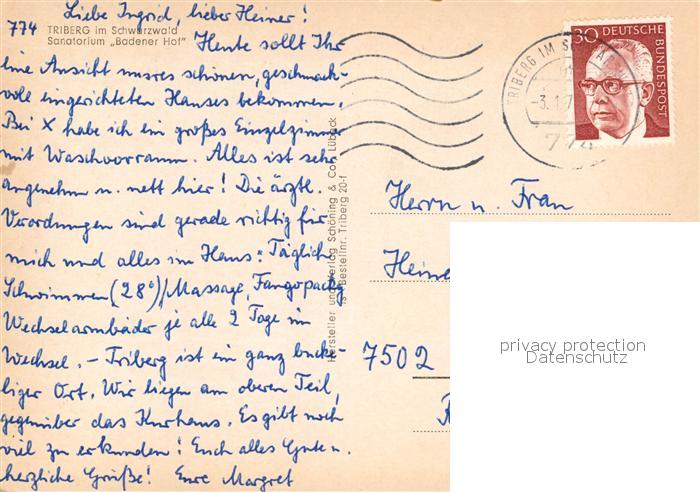 Liebe Ingrid, lieber Heiner!
774 TRIBERG im Schwarzwald
Sanatorium „Badener Hof"
Heute sollt Ihr
eine Ansicht unsres schönen, geschmack-
voll eingerichteten Hauses bekommen.
Bei X habe ich ein großes Einzelzimmer
mit Waschvorraum. Alles ist sehr
angenehm u. nett hier! Die ärztl.
Verordnungen sind gerade richtig für
mich und alles im Haus: Täglich
Schwimmen (28°)/Massage, Fangopackg
Wechselarmbäder je alle 2 Tage im
Wechsel. – Triberg ist ein ganz buck-
liger Ort. Wir liegen am oberen Teil,
gegenüber das Kurhaus. Es gibt noch
viel zu erkunden! Euch alles Gute u.
herzliche Grüße! Eure Margret
Hersteller und Verlag Schöning & Co., Lübeck
Bestellnr. Triberg 20-f
30 DEUTSCHE BUNDESPOST
TRIBERG IM
-3.1.7
774
Herrn u. Frau
Heine
7502
privacy protection
Datenschutz